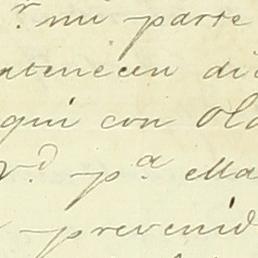 r mi parte
atenecen di
qui con Ola
Vd pa ella
prevenid